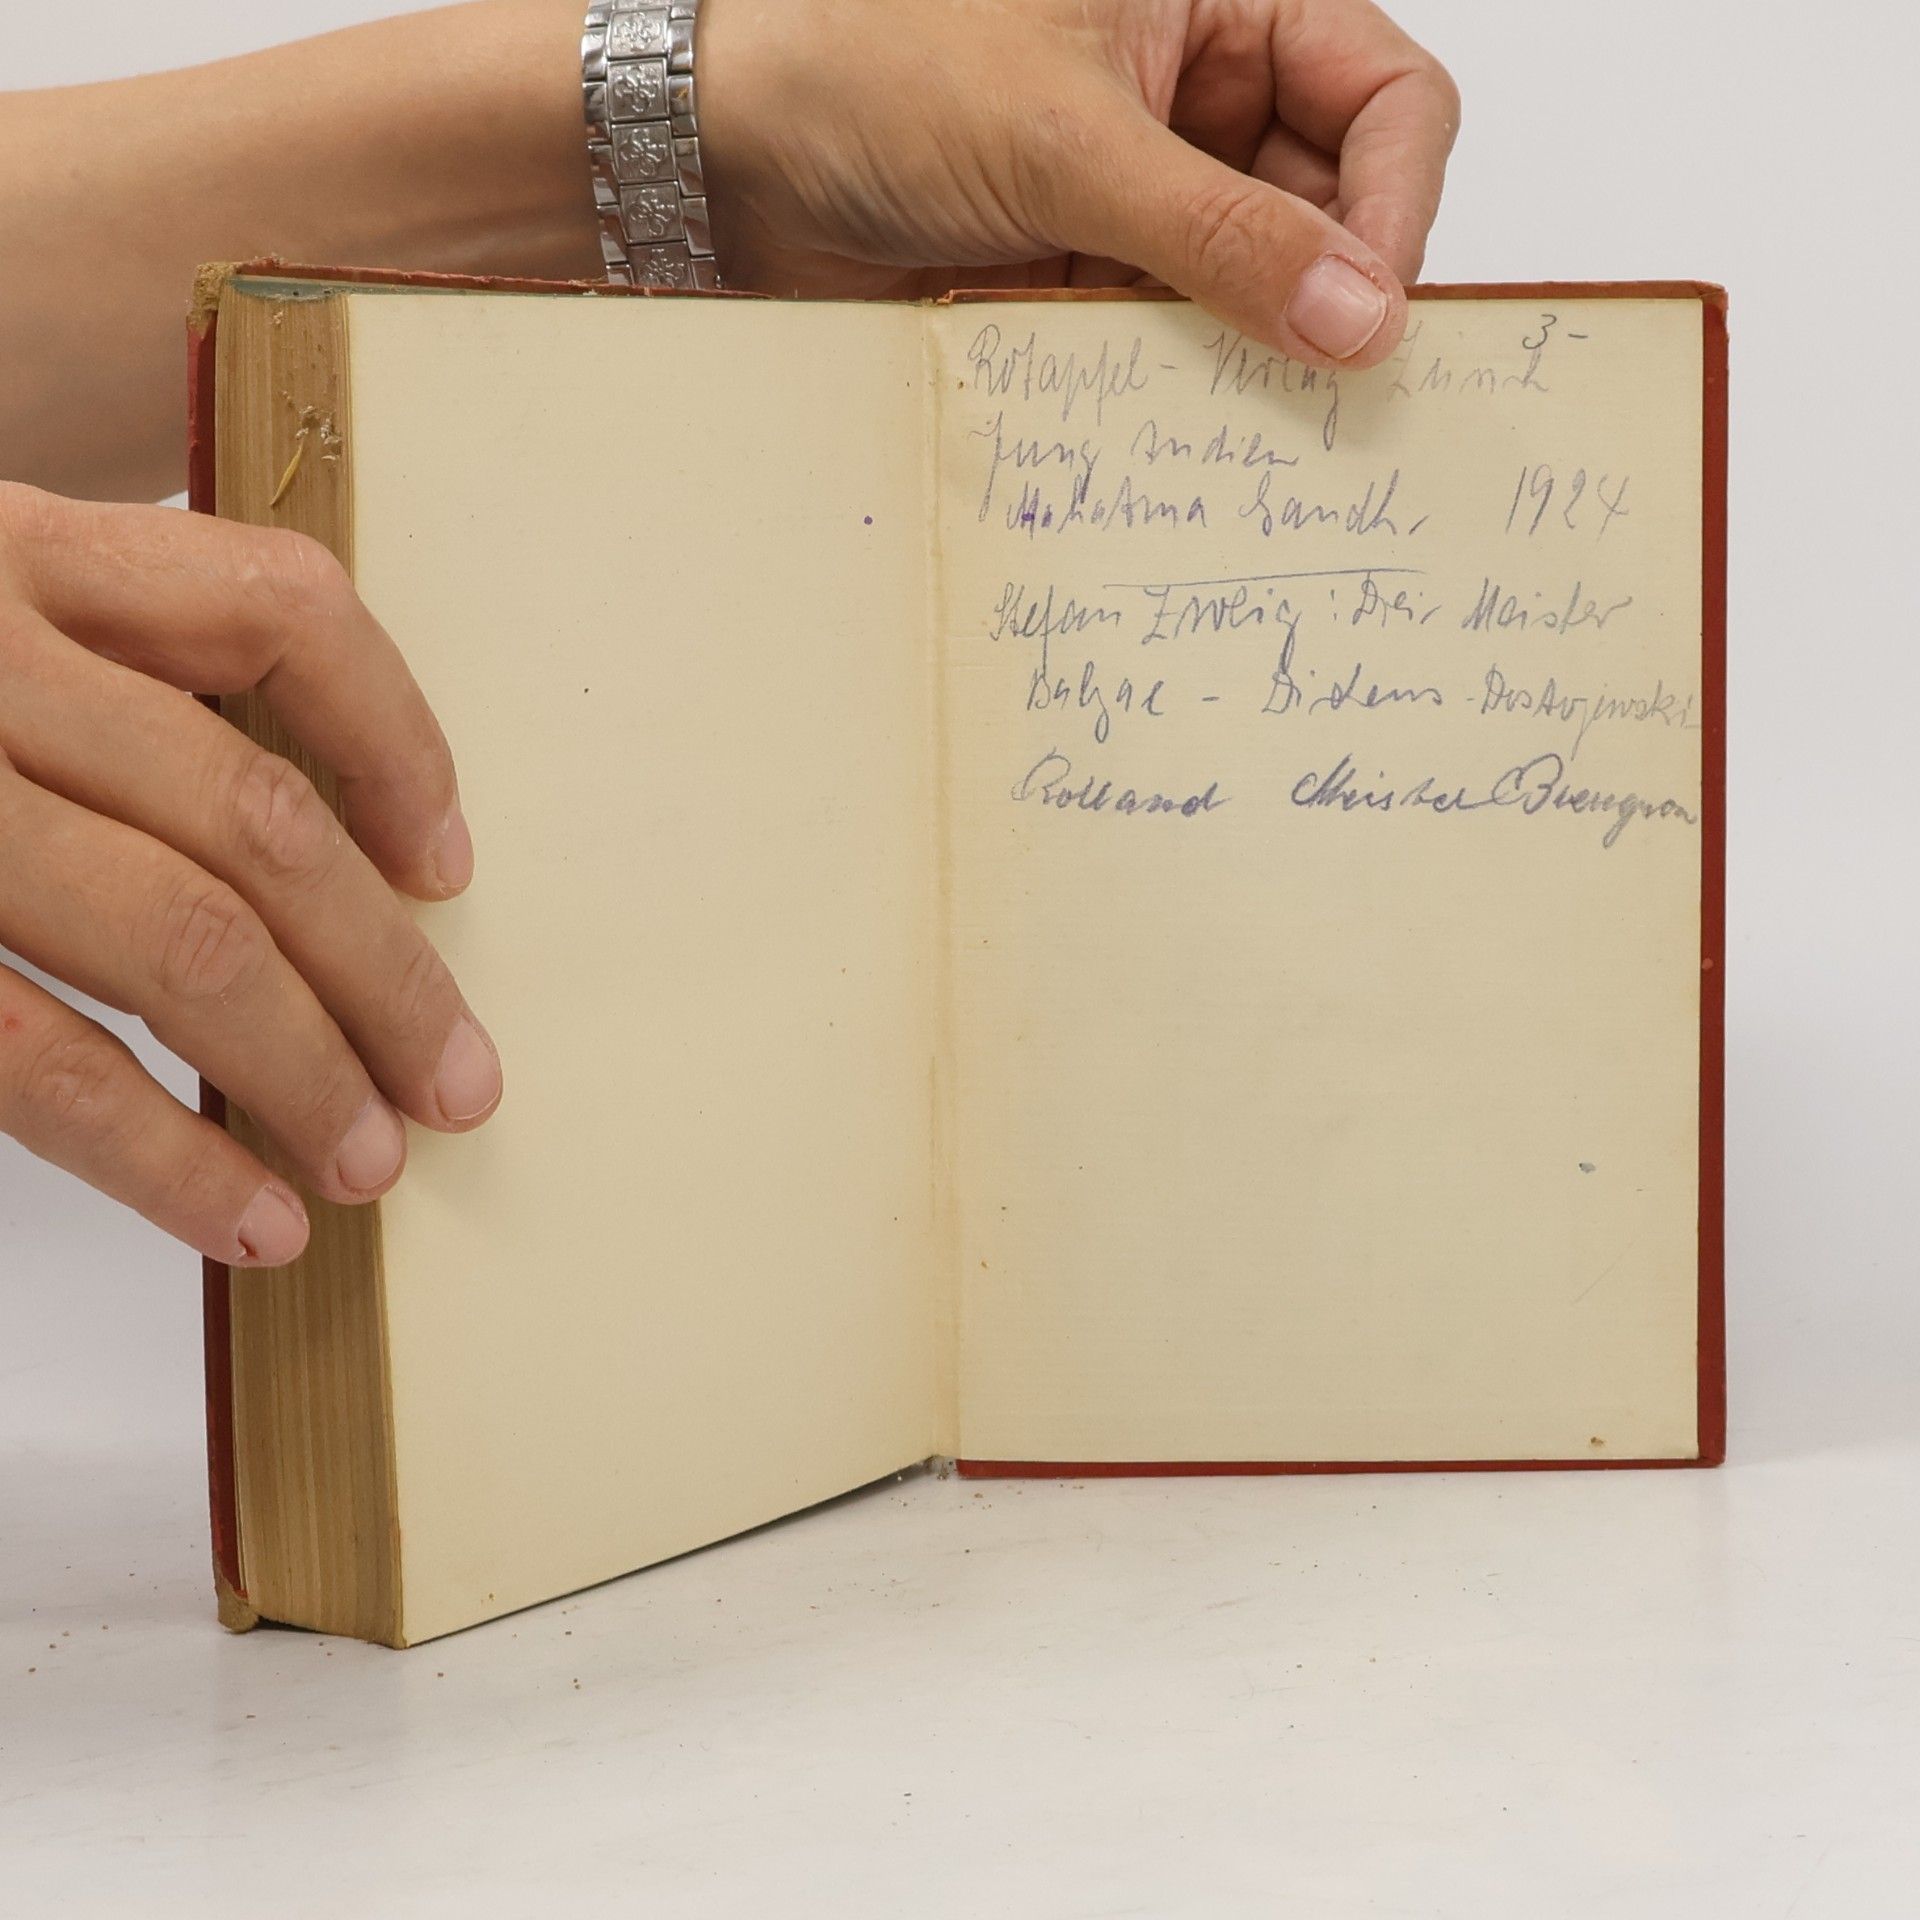 3-
Rotapfel - Verlag Zürich
Jung Indien
Mahatma Gandhi 1924
Stefan Zweig : Drei Meister
Balzac - Dickens - Dostojewski
Rolland Meister Breugnon